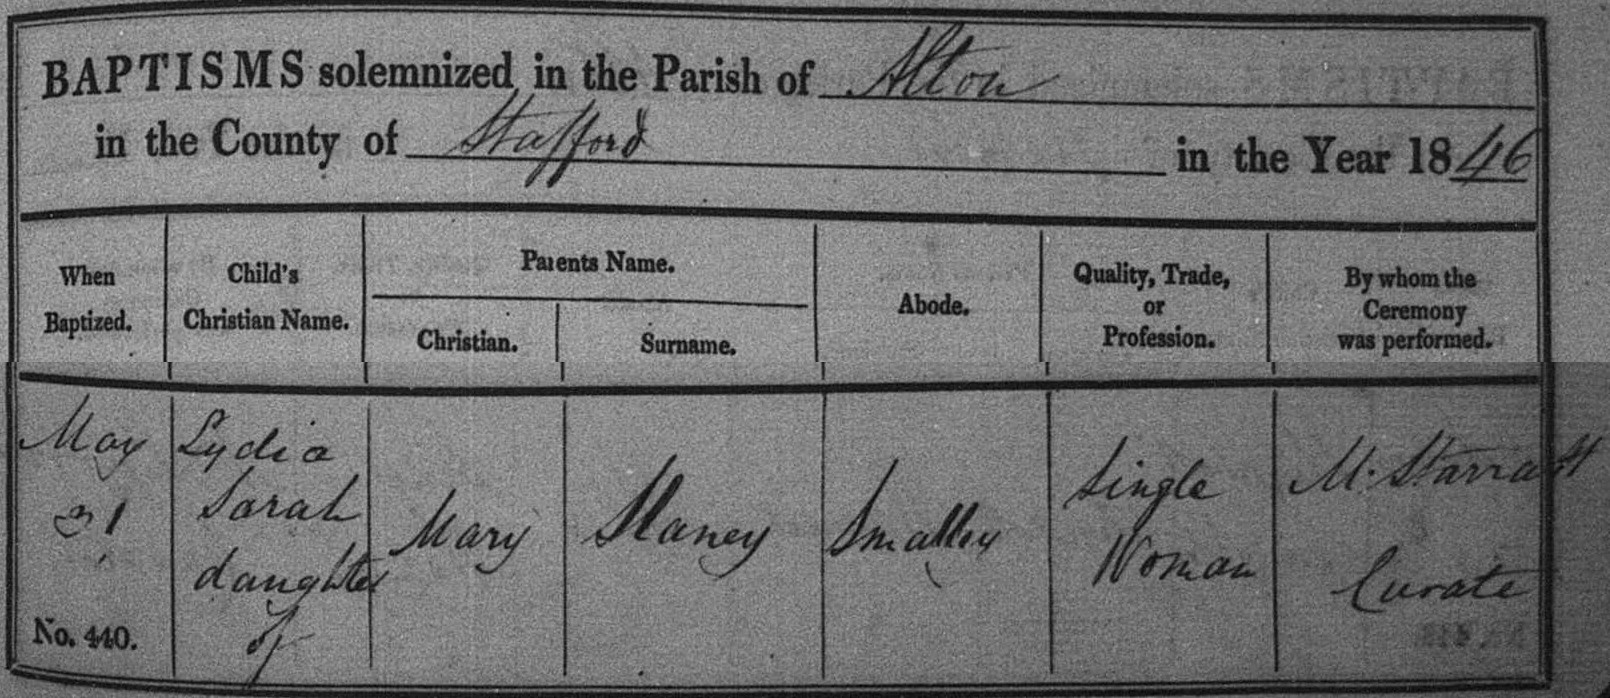 BAPTISMS solemnized in the Parish of Alton
in the County of Stafford in the Year 1846
When Baptized.
Child's Christian Name.
Parents Name.
Christian.
Surname.
Abode.
Quality, Trade, or Profession.
By whom the Ceremony was performed.
May
31
No. 440.
Lydia
Sarah
daughter
of
Mary
Slaney
Smalley
Single
Woman
M. Starratt
Curate